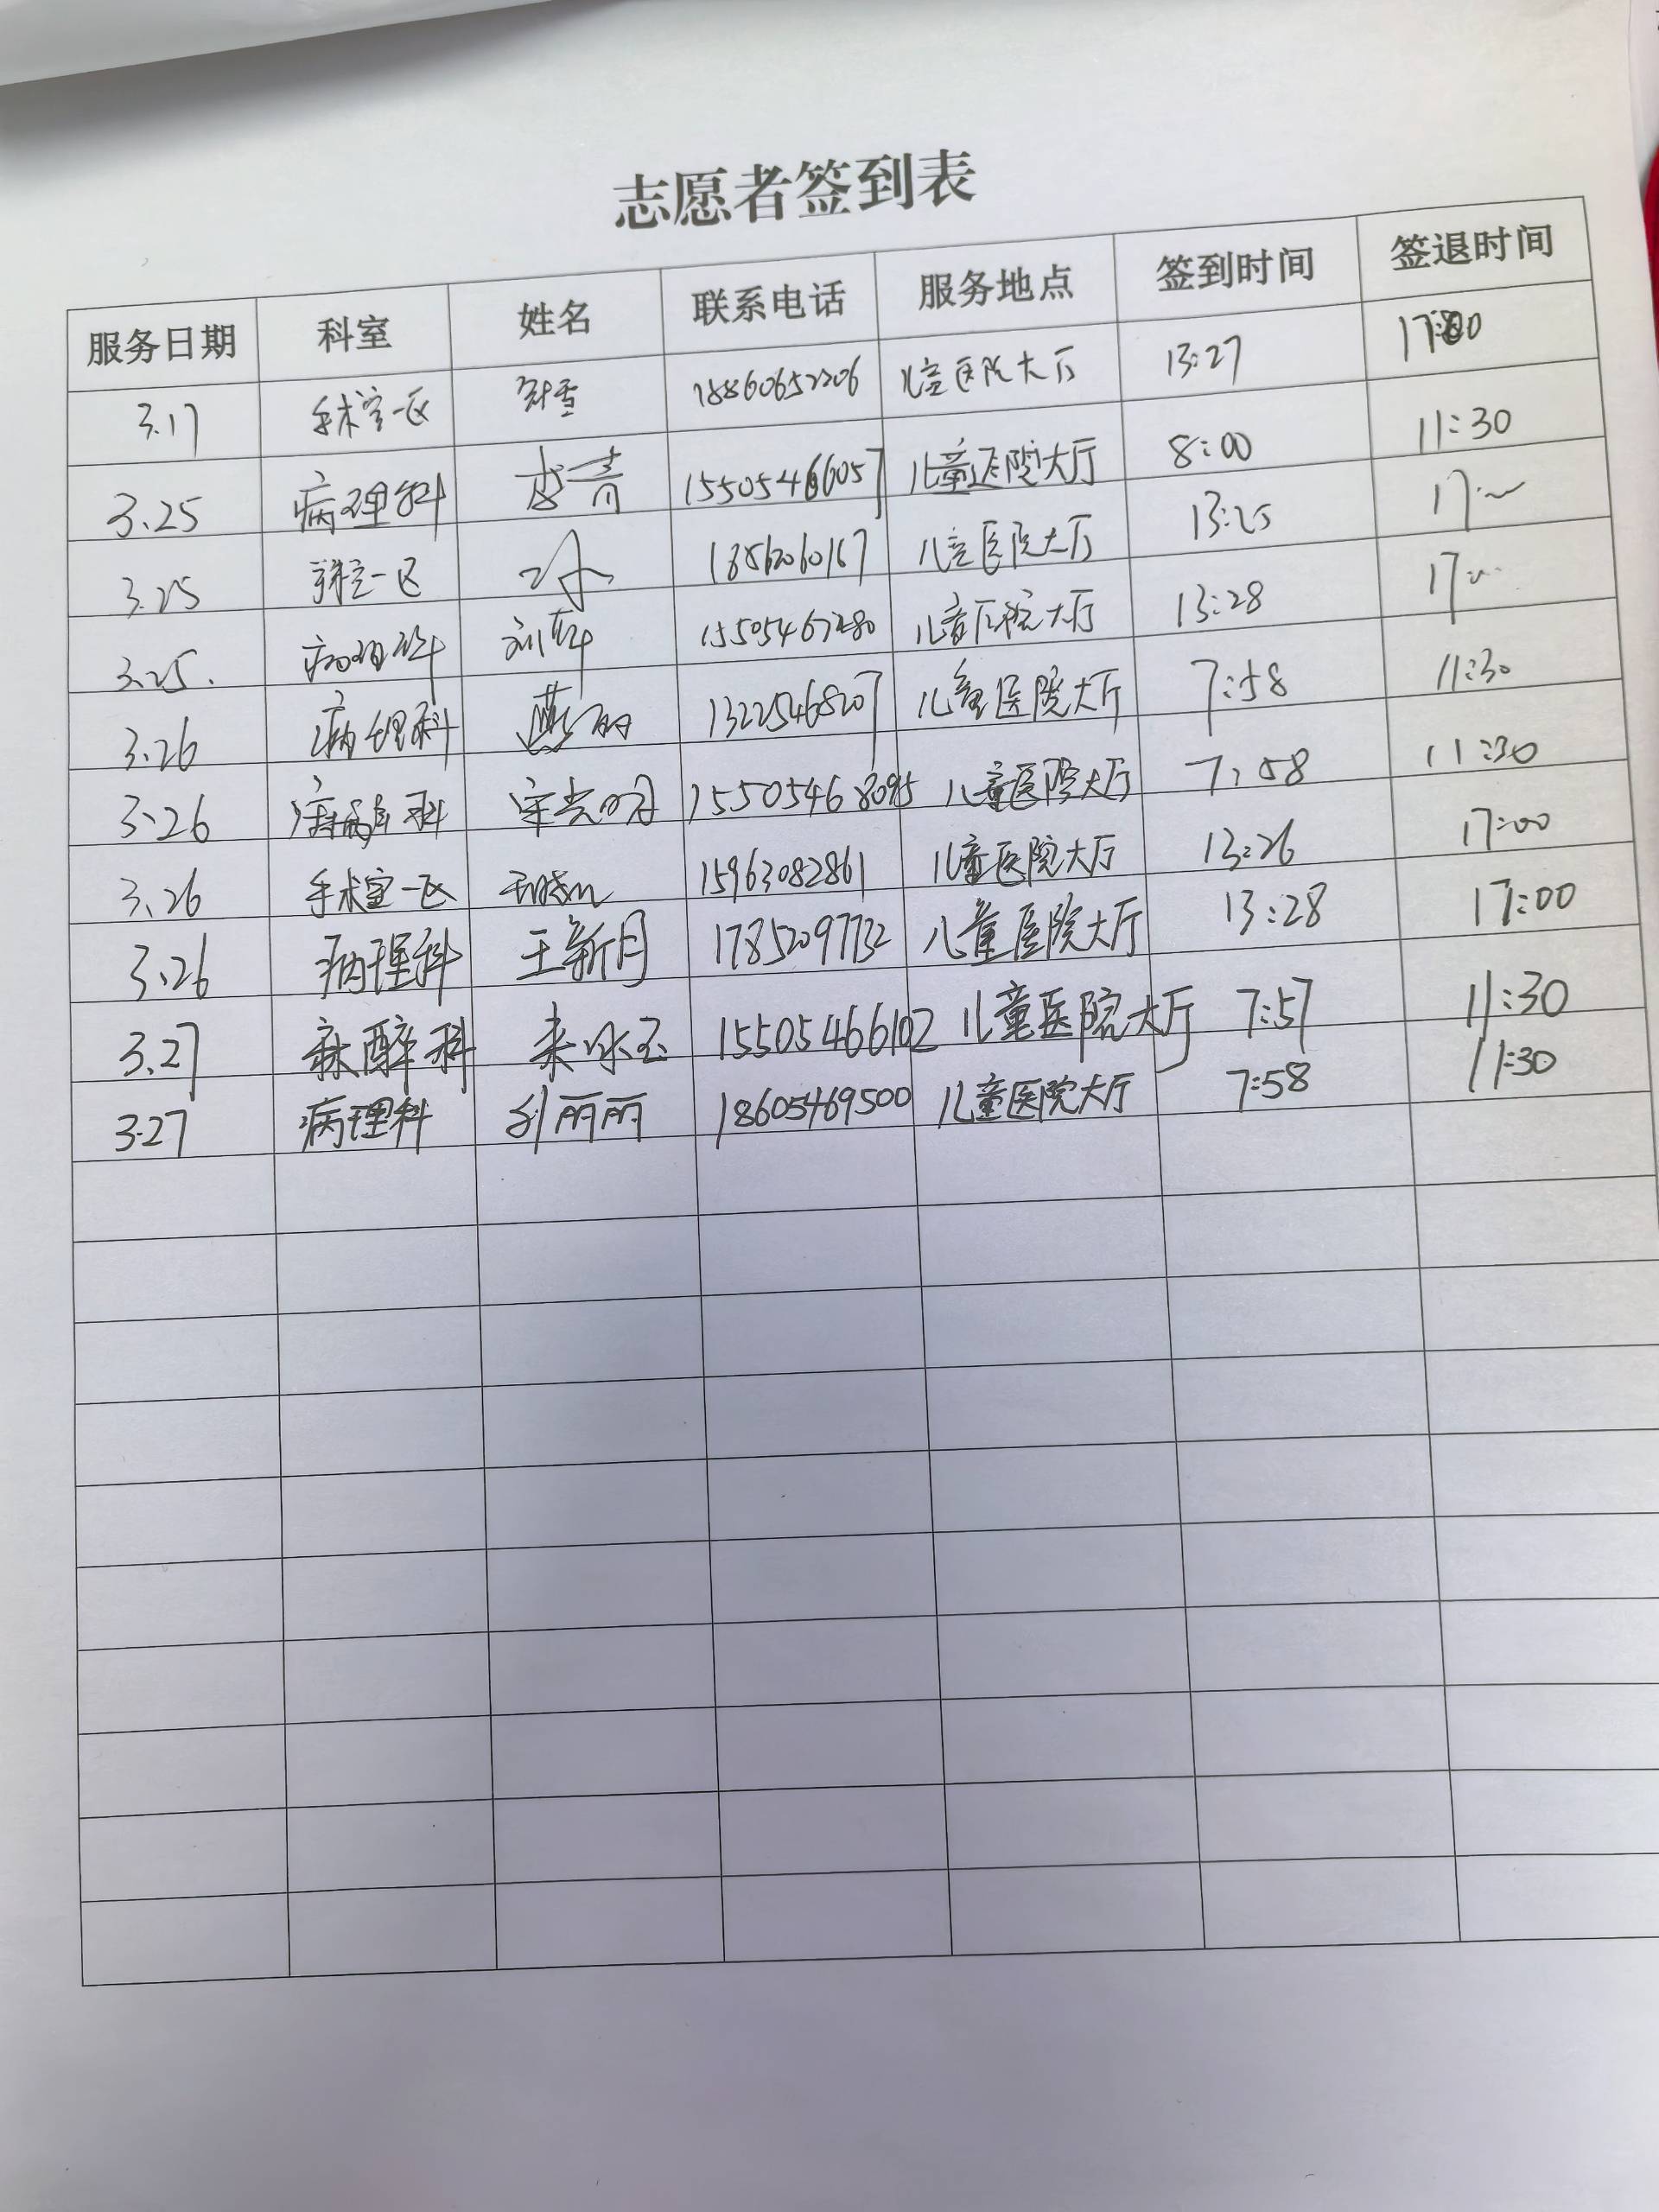 志愿者签到表
服务日期 科室 姓名 联系电话 服务地点 签到时间 签退时间
3.17 手术室一区 18860652206 儿童医院大厅 13:27 17:00
3.25 病理科 李青 15505466057 儿童医院大厅 8:00 11:30
3.25 手术室一区 儿童医院大厅 13:25 17:
3.25. 病理科 15505467280 儿童医院大厅 13:28 17:
3.26 病理科 13225468207 儿童医院大厅 7:58 11:30
3.26 科 宋光明 15505468095 儿童医院大厅 7:58 11:30
3.26 手术室一区 15963082861 儿童医院大厅 13:26 17:00
3.26 病理科 王新月 17852097732 儿童医院大厅 13:28 17:00
3.27 麻醉科 来冰玉 15505466102 儿童医院大厅 7:57 11:30
3.27 病理科 刘丽丽 18605469500 儿童医院大厅 7:58 11:30